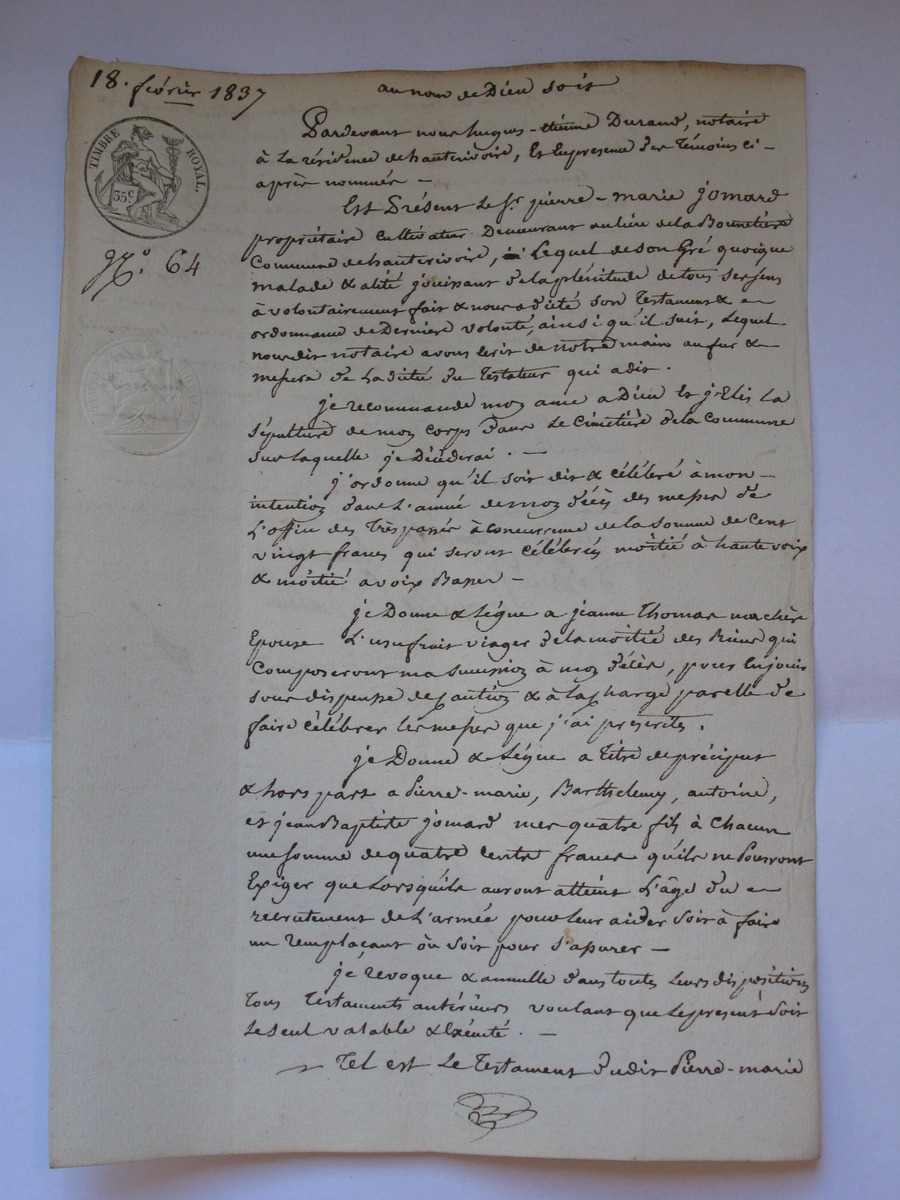 18. février 1837
au nom de Dieu soit
TIMBRE ROYAL.
35c
No. 64
Pardevant nous hugues-étienne Durand, notaire
à la résidence de hauterivoire, Et En presence des Témoins ci-
après nommés -
Est Présent Le Sr. pierre-marie jomard
propriétaire cultivateur Demeurant au lieu de la Bonnetière
Commune de hauterivoire, Lequel de son Gré quoique
malade & alité jouissant de la plénitude de tous ses sens
à volontairement fait & nous a dicté son Testament &
ordonnance de Dernière volonté, ainsi qu'il suit, Lequel
nous dit notaire avons Ecrit de notre main au fur &
mesure de La dictée du Testateur qui a dit.
je recommande mon ame a Dieu Et j'Elis La
sépulture de mon corps dans Le Cimetière de la commune
sur laquelle je Décéderai. -
j'ordonne qu'il soit dit & célébré à mon-
intention dans L'année de mon décès des messes de
L'office des Trèspassés à concurrence de la somme de Cent
vingt francs qui seront célébrées môitié à haute voix
& môitié a voix Basses -
je Donne & Lègue a jeanne Thomas ma chère
Epouse L'usufruit viager de la moitié des Biens qui
composeront ma succession à mon décès, pour En jouir
sous dispense de Caution & à la charge par elle de
faire célébrer les messes que j'ai prescrites.
je Donne & Lègue a Titre de préciput
& hors part a Pierre-marie, Barthelemy, antoine,
et jean Baptiste jomard mes quatre fils à Chacun
une somme de quatre Cents francs qu'ils ne Pourront
Exiger que Lorsqu'ils auront atteint L'âge du
recrutement de L'armée pour Leur aider soit à faire
un remplaçant ou soit pour s'assurer -
je révoque & annulle dans toutes Leurs dispositions
Tous Testaments antérieurs voulant que Le présent soit
Le seul valable & Exécuté. -
Tel est Le Testament dudit Pierre-marie